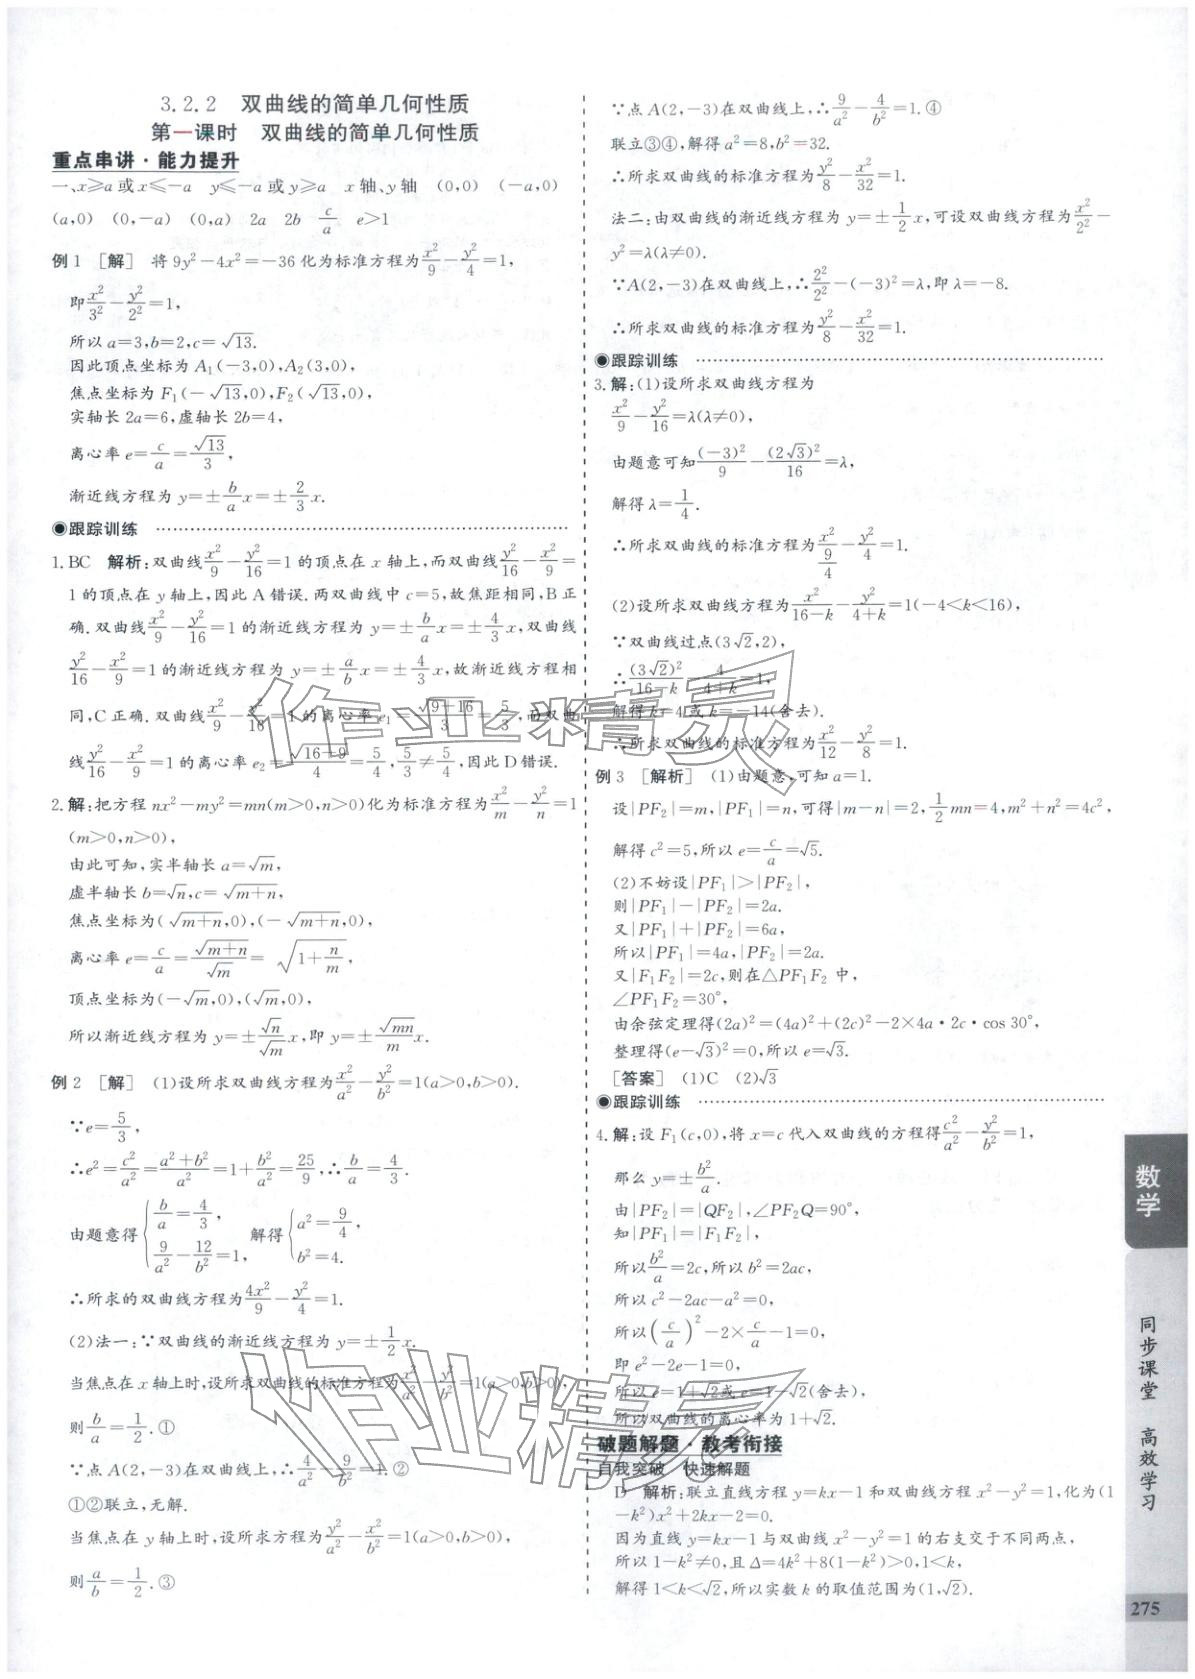 3.2.2 双曲线的简单几何性质
第一课时 双曲线的简单几何性质
重点串讲·能力提升
一、x≥a或x≤-a y≤-a或y≥a x轴、y轴 (0,0) (-a,0)
(a,0) (0,-a) (0,a) 2a 2b c/a e>1
例1 [解] 将9y²-4x²=-36化为标准方程为x²/9-y²/4=1,
即x²/3²-y²/2²=1,
所以a=3,b=2,c=√13.
因此顶点坐标为A₁(-3,0),A₂(3,0),
焦点坐标为F₁(-√13,0),F₂(√13,0),
实轴长2a=6,虚轴长2b=4,
离心率e=c/a=√13/3,
渐近线方程为y=±b/a x=±2/3 x.
◉跟踪训练
1.BC 解析:双曲线x²/9-y²/16=1的顶点在x轴上,而双曲线y²/16-x²/9=
1的顶点在y轴上,因此A错误.两双曲线中c=5,故焦距相同,B正
确.双曲线x²/9-y²/16=1的渐近线方程为y=±b/a x=±4/3 x,双曲线
y²/16-x²/9=1的渐近线方程为y=±a/b x=±4/3 x,故渐近线方程相
同,C正确.双曲线x²/9-y²/16=1的离心率e₁=√(9+16)/3=5/3,而双曲
线y²/16-x²/9=1的离心率e₂=√(16-9)/4=5/4,5/3≠5/4,因此D错误.
2.解:把方程nx²-my²=mn(m>0,n>0)化为标准方程为x²/m-y²/n=1
(m>0,n>0),
由此可知,实半轴长a=√m,
虚半轴长b=√n,c=√(m+n),
焦点坐标为(√(m+n),0),(-√(m+n),0),
离心率e=c/a=√(m+n)/√m=√(1+n/m),
顶点坐标为(-√m,0),(√m,0),
所以渐近线方程为y=±√n/√m x,即y=±√(mn)/m x.
例2 [解] (1)设所求双曲线方程为x²/a²-y²/b²=1(a>0,b>0).
∵e=5/3,
∴e²=c²/a²=(a²+b²)/a²=1+b²/a²=25/9,∴b/a=4/3.
由题意得{b/a=4/3, 9/a²-12/b²=1, 解得{a²=9/4, b²=4.
∴所求的双曲线方程为4x²/9-y²/4=1.
(2)法一:∵双曲线的渐近线方程为y=±1/2 x.
当焦点在x轴上时,设所求双曲线的标准方程为x²/a²-y²/b²=1(a>0,b>0),
则b/a=1/2.①
∵点A(2,-3)在双曲线上,∴4/a²-9/b²=1.②
①②联立,无解.
当焦点在y轴上时,设所求方程为y²/a²-x²/b²=1(a>0,b>0),
则a/b=1/2.③
∵点A(2,-3)在双曲线上,∴9/a²-4/b²=1.④
联立③④,解得a²=8,b²=32.
∴所求双曲线的标准方程为y²/8-x²/32=1.
法二:由双曲线的渐近线方程为y=±1/2 x,可设双曲线方程为x²/2²-
y²=λ(λ≠0).
∵A(2,-3)在双曲线上,∴2²/2²-(-3)²=λ,即λ=-8.
∴所求双曲线的标准方程为y²/8-x²/32=1.
◉跟踪训练
3.解:(1)设所求双曲线方程为
x²/9-y²/16=λ(λ≠0),
由题意可知(-3)²/9-(2√3)²/16=λ,
解得λ=1/4.
∴所求双曲线的标准方程为x²/(9/4)-y²/4=1.
(2)设所求双曲线方程为x²/(16-k)-y²/(4+k)=1(-4<k<16),
∵双曲线过点(3√2,2),
∴(3√2)²/(16-k)-4/(4+k)=1,
解得k=4或k=-14(舍去).
∴所求双曲线的标准方程为x²/12-y²/8=1.
例3 [解析] (1)由题意,可知a=1.
设|PF₂|=m,|PF₁|=n,可得|m-n|=2,1/2 mn=4,m²+n²=4c²,
解得c²=5,所以e=c/a=√5.
(2)不妨设|PF₁|>|PF₂|,
则|PF₁|-|PF₂|=2a.
又|PF₁|+|PF₂|=6a,
所以|PF₁|=4a,|PF₂|=2a.
又|F₁F₂|=2c,则在△PF₁F₂中,
∠PF₁F₂=30°,
由余弦定理得(2a)²=(4a)²+(2c)²-2×4a·2c·cos 30°,
整理得(e-√3)²=0,所以e=√3.
[答案] (1)C (2)√3
◉跟踪训练
4.解:设F₁(c,0),将x=c代入双曲线的方程得c²/a²-y²/b²=1,
那么y=±b²/a.
由|PF₂|=|QF₂|,∠PF₂Q=90°,
知|PF₁|=|F₁F₂|,
所以b²/a=2c,所以b²=2ac,
所以c²-2ac-a²=0,
所以(c/a)²-2×c/a-1=0,
即e²-2e-1=0,
所以e=1+√2或e=1-√2(舍去),
所以双曲线的离心率为1+√2.
破题解题·教考衔接
自我突破 快速解题
D 解析:联立直线方程y=kx-1和双曲线方程x²-y²=1,化为(1
-k²)x²+2kx-2=0.
因为直线y=kx-1与双曲线x²-y²=1的右支交于不同两点,
所以1-k²≠0,且Δ=4k²+8(1-k²)>0,1<k,
解得1<k<√2,所以实数k的取值范围为(1,√2).
数学
同步课堂 高效学习
275
作业精灵
作业精灵